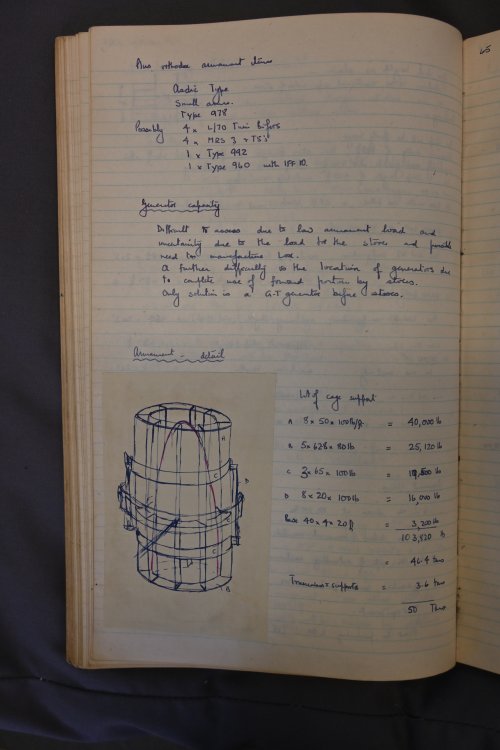 65
Plus orthodox armament items
Asdic Type
Small arms.
Type 978
Possibly 4 x L/70 Twin Bofors
4 x MRS 3 + TS's
1 x Type 992
1 x Type 960 with IFF 10.
Generator capacity
Difficult to assess due to low armament load and
uncertainty due to the load for the stores and possible
need to manufacture Lox.
A further difficulty is the location of generators due
to complete use of forward portion by stores.
Only solution is a G-T generator before stores.
Armament - detail
Wt of cage support
A 8 x 50 x 100 lb/ft. = 40,000 lb
B 5 x 628 x 80 lb = 25,120 lb
C 3 x 65 x 100 lb = 19,500 lb
D 8 x 20 x 100 lb = 16,000 lb
Base 40 x 4 x 20 = 3,200 lb
103,820 lb
= 46.4 tons
supports = 3.6 tons
50 Tons
A
D
C
C
B